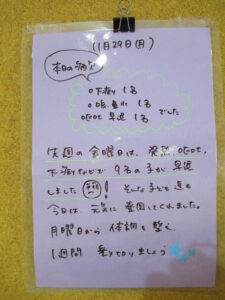 11月29日(月)
本日の病欠
○下痢 1名
○咳、鼻水 1名
嘔吐 早退 1名 でした
先週の金曜日は、発熱、嘔吐、
下痢などで 9名の子が早退
しました !そんな子ども達も
今日は 元気に 登園してくれました。
月曜日から 体調を整え、
1週間 乗りきりましょう